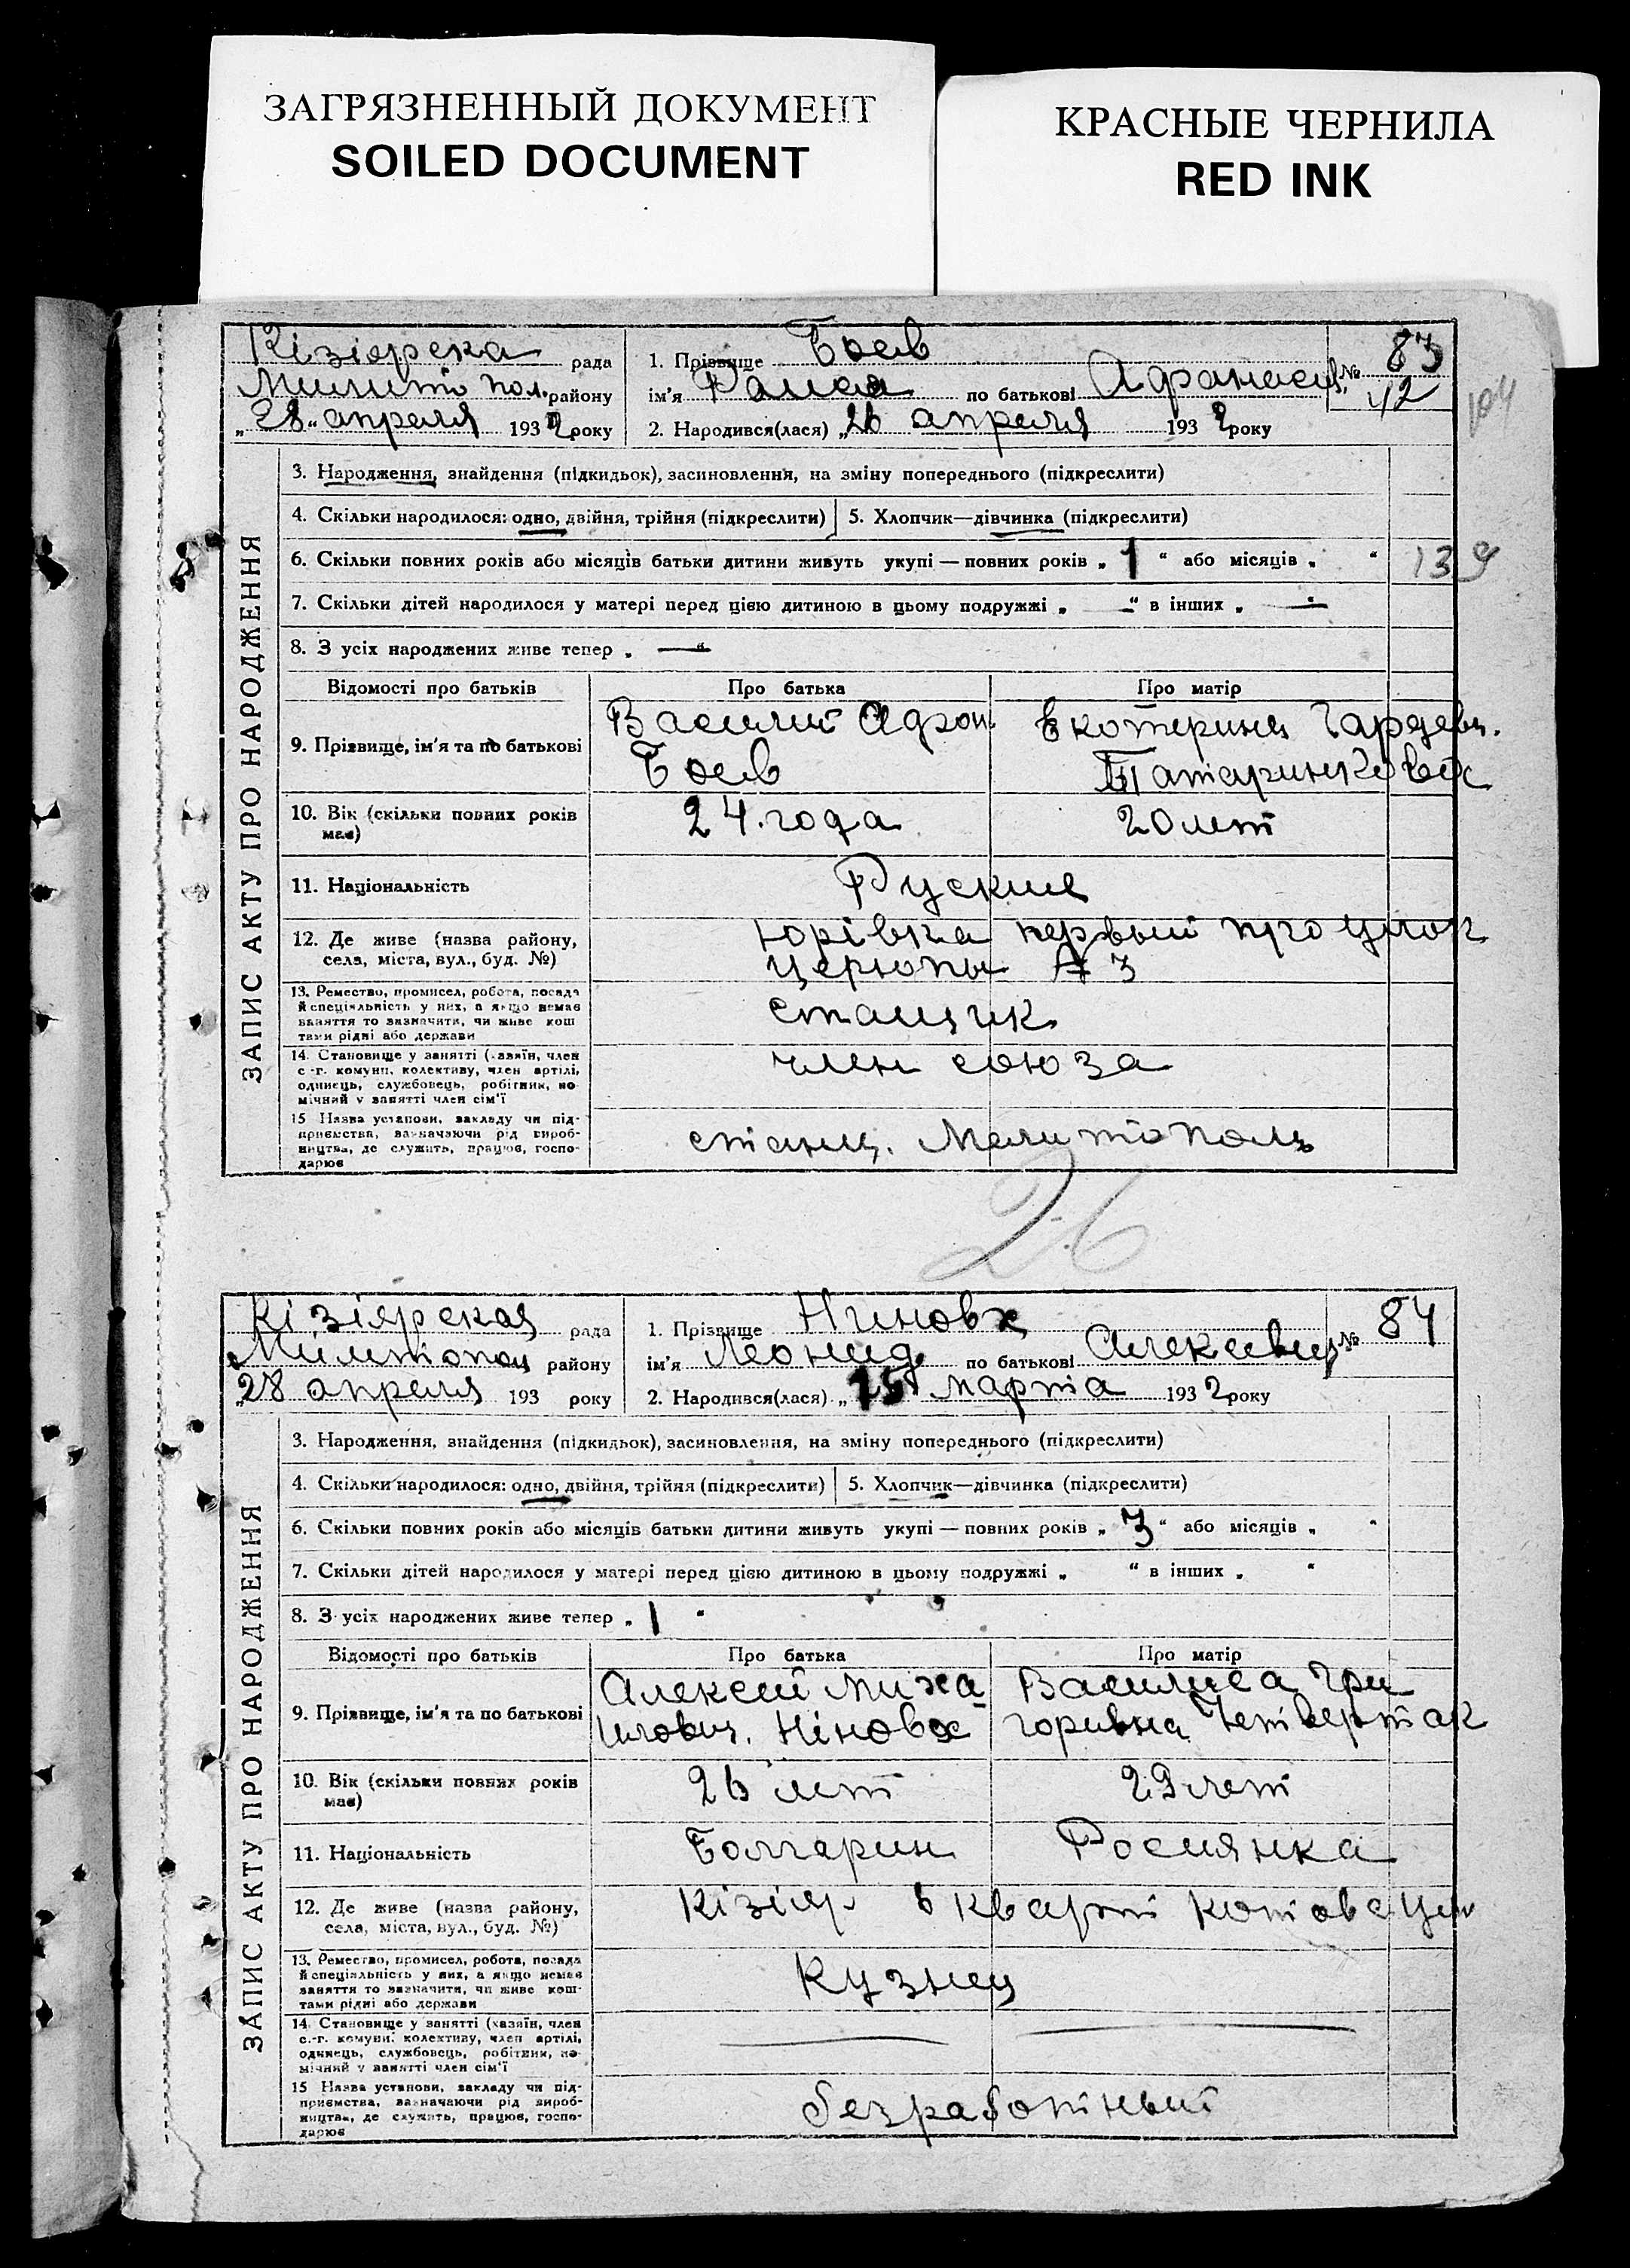 ЗАГРЯЗНЕННЫЙ ДОКУМЕНТ
SOILED DOCUMENT
КРАСНЫЕ ЧЕРНИЛА
RED INK
Кізіярска рада
района Мелито пол. району
„28“ апреля 1932 року
1. Прізвище Боев
ім'я по батькові Афанасев
2. Народився(лася) „26 апреля 1932 року
№ 83
42
104
ЗАПИС АКТУ ПРО НАРОДЖЕННЯ
3. Народження, знайдення (підкидьок), засиновлення, на зміну попереднього (підкреслити)
4. Скільки народилося: одно, двійня, трійня (підкреслити) 5. Хлопчик—дівчинка (підкреслити)
6. Скільки повних років або місяців батьки дитини живуть укупі — повних років „ 1 “ або місяців „ “
139
7. Скільки дітей народилося у матері перед цією дитиною в цьому подружжі „ — “ в інших „ — “
8. З усіх народжених живе тепер „ — “
Відомості про батьків Про батька Про матір
9. Прізвище, ім'я та по батькові
Василий Афон
Боев
Екотерина
Татаринкова
10. Вік (скільки повних років має) 24. года 20 лет
11. Національність Руские
12. Де живе (назва району, села, міста, вул., буд. №)
Юрівка первый проулок
Церюпы 3
13. Ремество, промисел, робота, посада й спеціяльність у них, а якщо немає заняття то зазначити, чи живе коштами рідні або держави
14. Становище у занятті (хазяїн, член с.-г. комуни, колективу, член артілі, одинець, службовець, робітник, помічний у занятті член сім'ї
член союза
15 Назва установи, закладу чи підприємства, зазначаючи рід виробництва, де служить, працює, господарює
станц. Мелитополь
26
Кізіярская рада
району
„28 апреля 193 року
1. Прізвище Нинова
ім'я Леонид по батькові Алексевич
2. Народився(лася) „15 марта 1932 року
№ 84
ЗАПИС АКТУ ПРО НАРОДЖЕННЯ
3. Народження, знайдення (підкидьок), засиновлення, на зміну попереднього (підкреслити)
4. Скільки народилося: одно, двійня, трійня (підкреслити) 5. Хлопчик—дівчинка (підкреслити)
6. Скільки повних років або місяців батьки дитини живуть укупі — повних років „ 3 “ або місяців „ “
7. Скільки дітей народилося у матері перед цією дитиною в цьому подружжі „ “ в інших „ “
8. З усіх народжених живе тепер „ 1 “
Відомості про батьків Про батька Про матір
9. Прізвище, ім'я та по батькові
Алексей Миха
илович. Нінова
Василиса Гри
горивна Четвертак
10. Вік (скільки повних років має) 26 лет 29 лет
11. Національність Болгарин Росиянка
12. Де живе (назва району, села, міста, вул., буд. №)
Кізіяр 6 Кварт
13. Ремество, промисел, робота, посада й спеціяльність у них, а якщо немає заняття то зазначити, чи живе коштами рідні або держави
Кузнец
14. Становище у занятті (хазяїн, член с.-г. комуни, колективу, член артілі, одинець, службовець, робітник, помічний у занятті член сім'ї
15 Назва установи, закладу чи підприємства, зазначаючи рід виробництва, де служить, працює, господарює
безработный